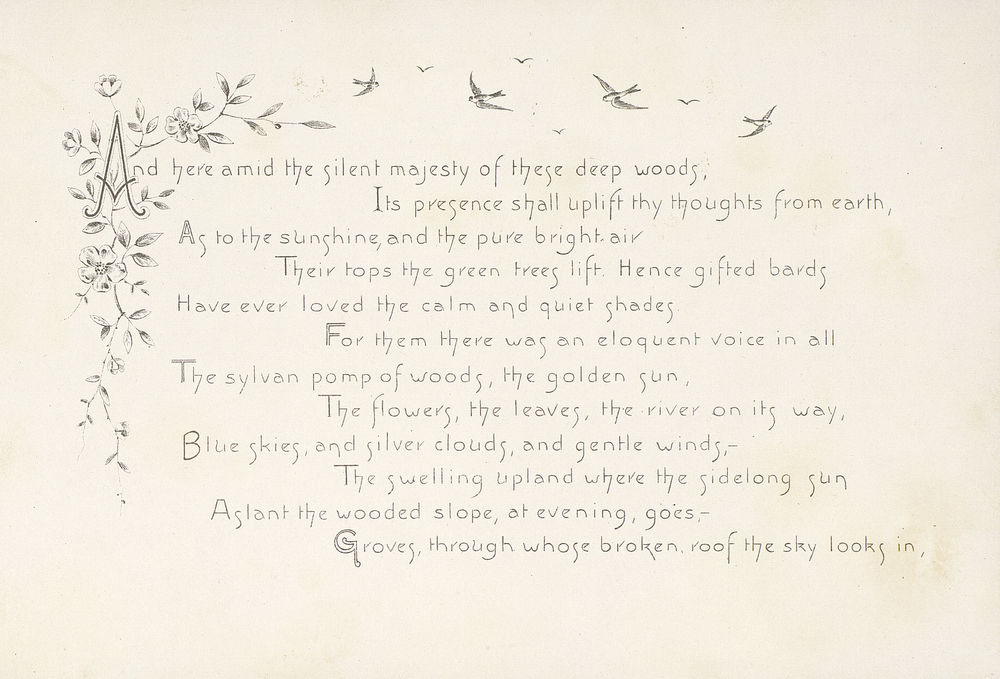 And here amid the silent majesty of these deep woods,
Its presence shall uplift thy thoughts from earth,
As to the sunshine, and the pure bright air
Their tops the green trees lift. Hence gifted bards
Have ever loved the calm and quiet shades.
For them there was an eloquent voice in all
The sylvan pomp of woods, the golden sun,
The flowers, the leaves, the river on its way,
Blue skies, and silver clouds, and gentle winds,–
The swelling upland where the sidelong sun
Aslant the wooded slope, at evening, goes,–
Groves, through whose broken roof the sky looks in,